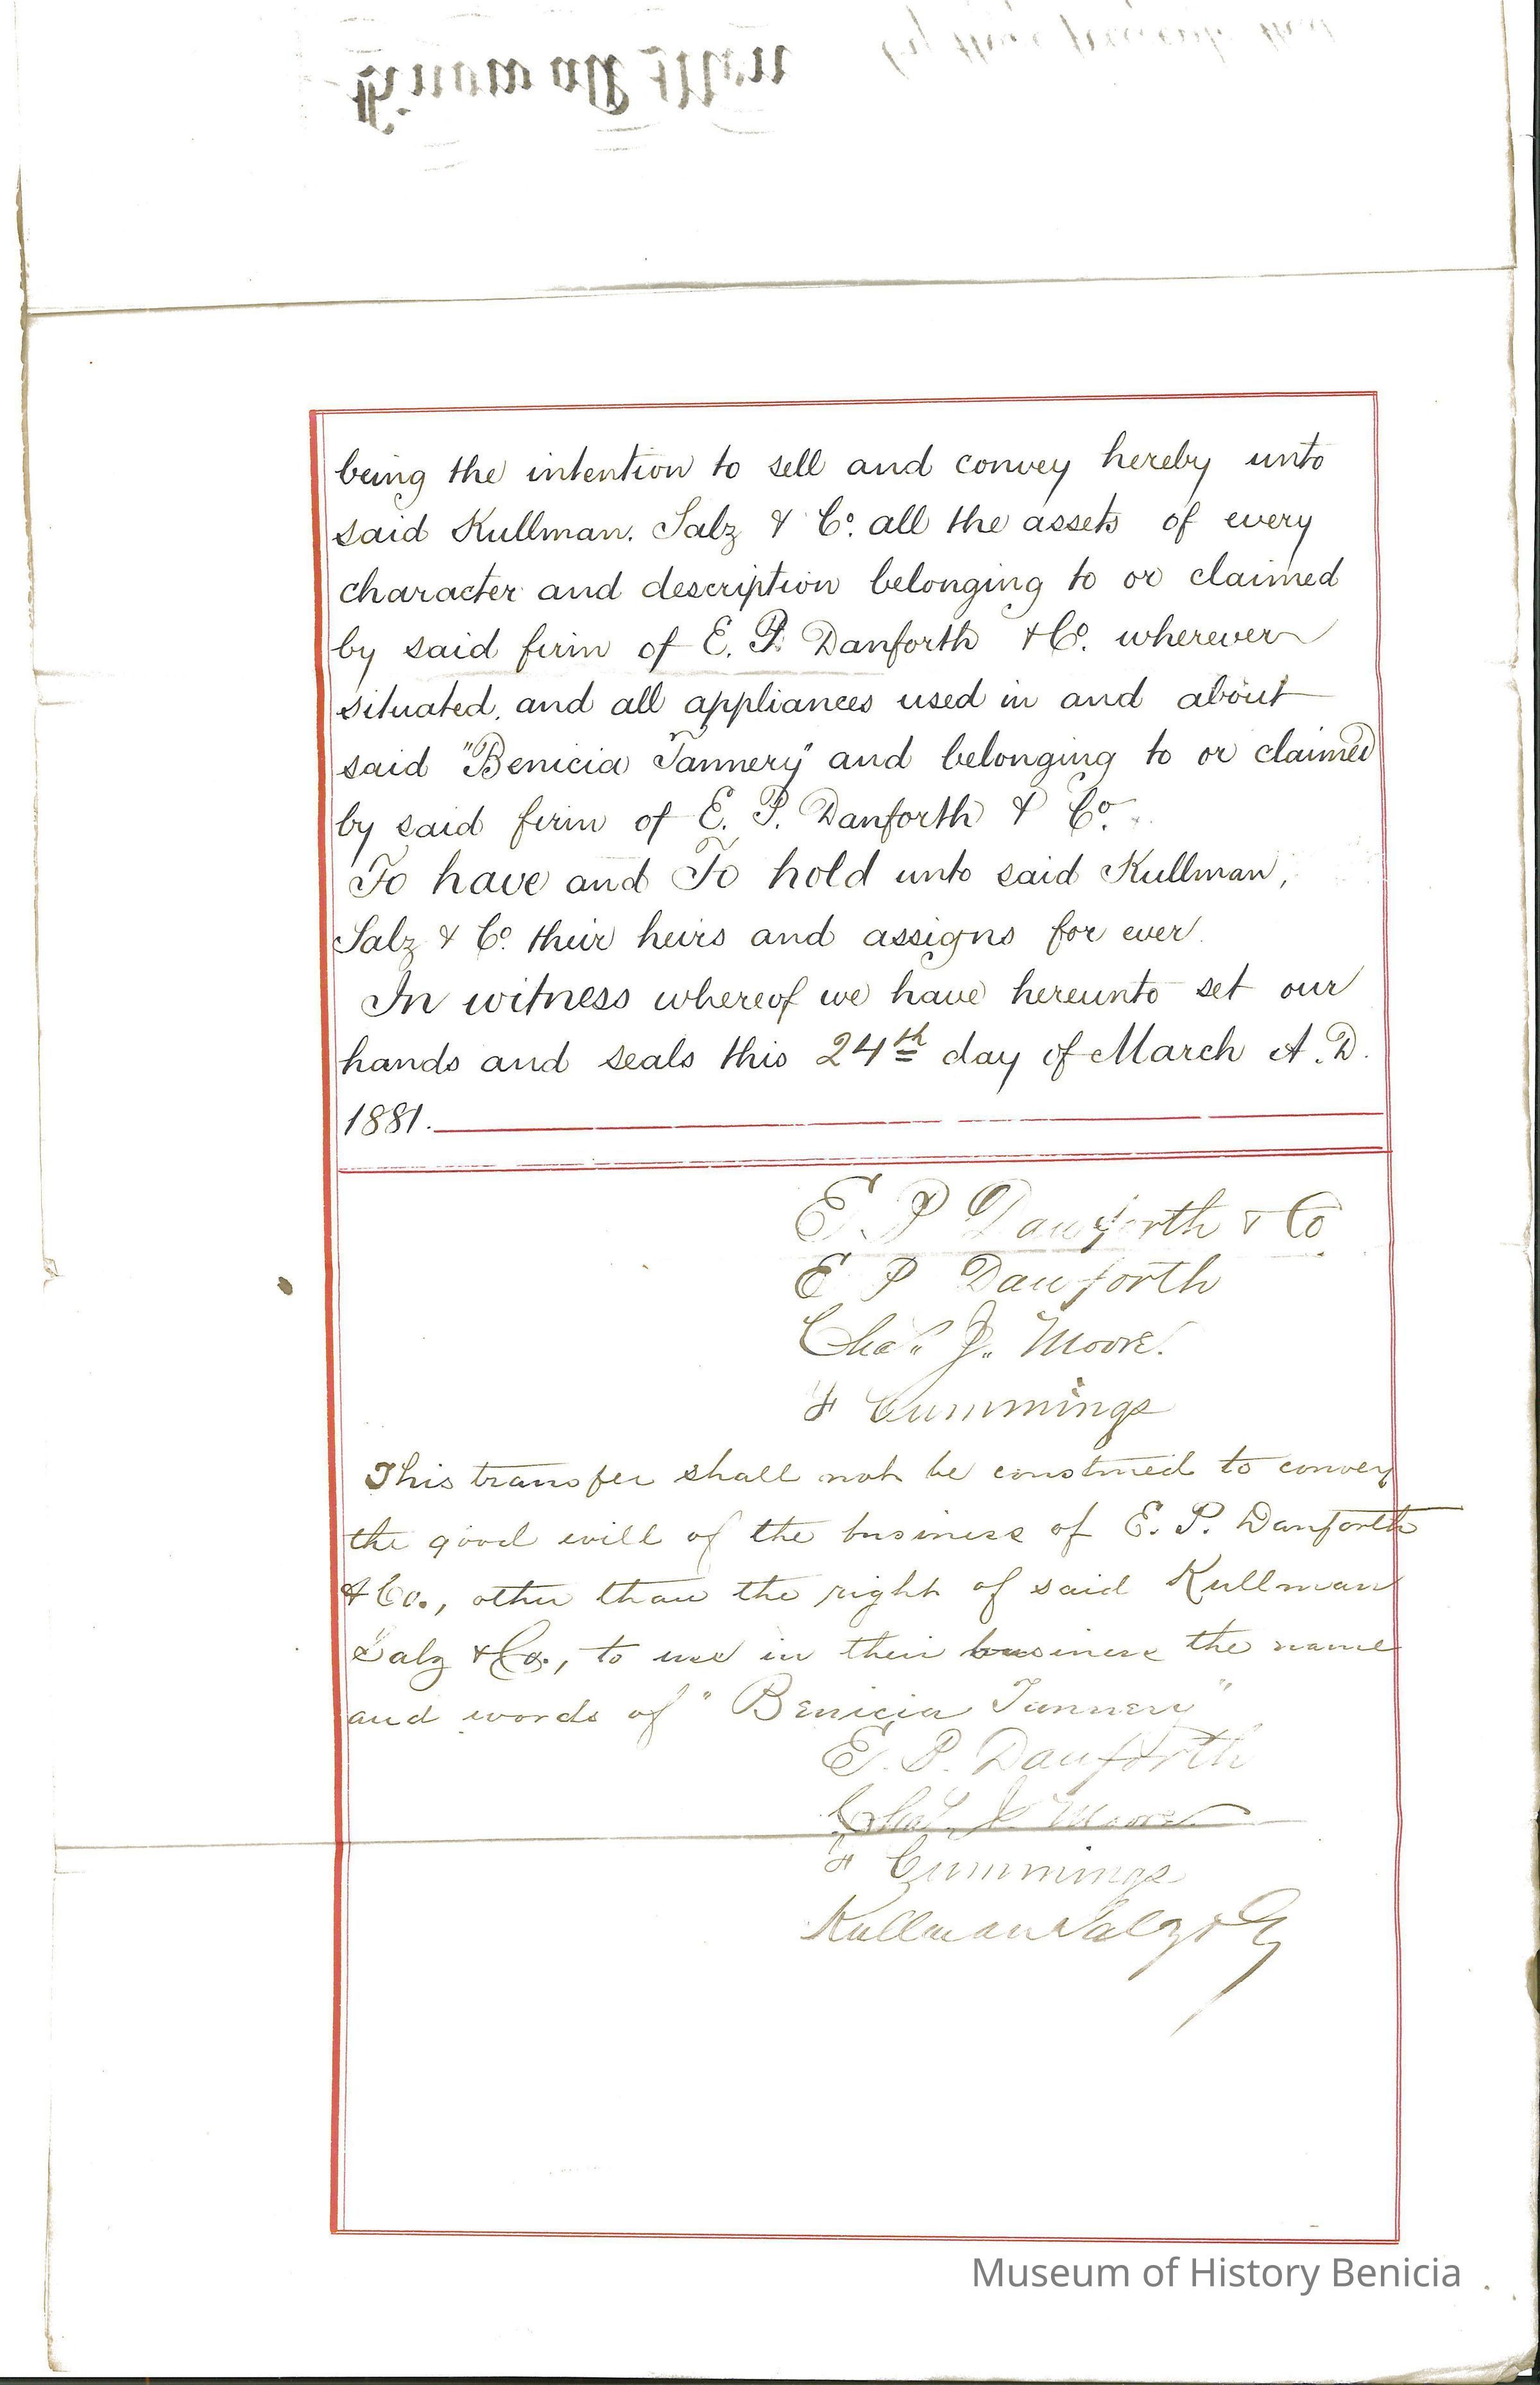 being the intention to sell and convey hereby unto
said Kullman, Salz & Co. all the assets of every
character and description belonging to or claimed
by said firm of E. P. Danforth & Co. wherever
situated, and all appliances used in and about
said "Benicia Tannery" and belonging to or claimed
by said firm of E. P. Danforth & Co.
To have and To hold unto said Kullman,
Salz & Co. their heirs and assigns for ever.
In witness whereof we have hereunto set our
hands and seals this 24th day of March A.D.
1881.
E P Danforth & Co
E P Danforth
Chas. J. Moore.
F Cummings
This transfer shall not be construed to convey
the good will of the business of E. P. Danforth
& Co., other than the right of said Kullman
Salz & Co., to use in their business the name
and words of "Benicia Tannery"
E. P. Danforth
Chas. J. Moore
F Cummings
Kullman Salz & Co
Museum of History Benicia